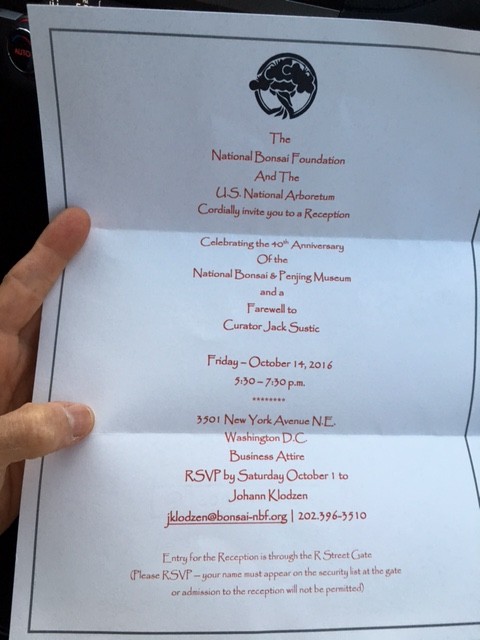 The
National Bonsai Foundation
And The
U.S. National Arboretum
Cordially invite you to a Reception
Celebrating the 40th Anniversary
Of the
National Bonsai & Penjing Museum
and a
Farewell to
Curator Jack Sustic
Friday – October 14, 2016
5:30 – 7:30 p.m.
********
3501 New York Avenue N.E.
Washington D.C
Business Attire
RSVP by Saturday October 1 to
Johann Klodzen
jklodzen@bonsai-nbf.org | 202.396-3510
Entry for the Reception is through the R Street Gate
(Please RSVP – your name must appear on the security list at the gate
or admission to the reception will not be permitted)
AUTO